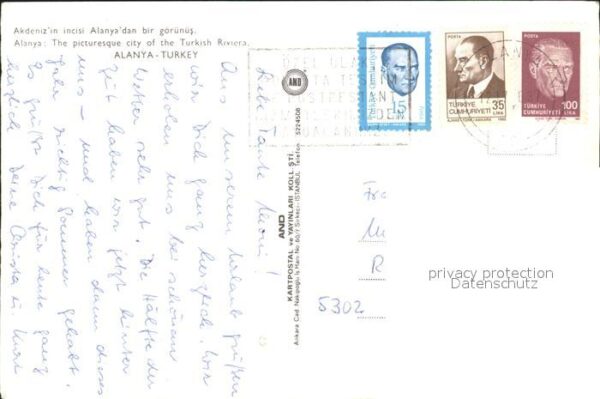 Akdeniz'in incisi Alanya'dan bir görünüş.
Alanya: The picturesque city of the Turkish Riviera.
ALANYA-TURKEY
Liebe Tante Moni!
Aus unserem Urlaub grüßen
wir Dich ganz herzlich. Wir
erholen uns bei schönem
Wetter sehr gut. Die Hälfte der
Zeit haben wir jetzt hinter
uns - und haben dann dieses
Jahr richtig Sommer gehabt.
Es grüßen Dich für heute ganz
herzlich Deine Christa &
AND
5224508
AND
KARTPOSTAL ve YAYINLARI KOLL. ŞTİ.
Ankara Cad. Nakipoğlu İş Hanı No. 60/7 Sirkeci-İSTANBUL Telefon
ÖZEL ULAK
POSTA
Türkiye Cumhuriyeti
15
Posta
POSTA
TÜRKİYE
CUMHURİYETİ
35
LİRA
POSTA
TÜRKİYE
CUMHURİYETİ
100
LİRA
Fra
M
R
5302
privacy protection
Datenschutz